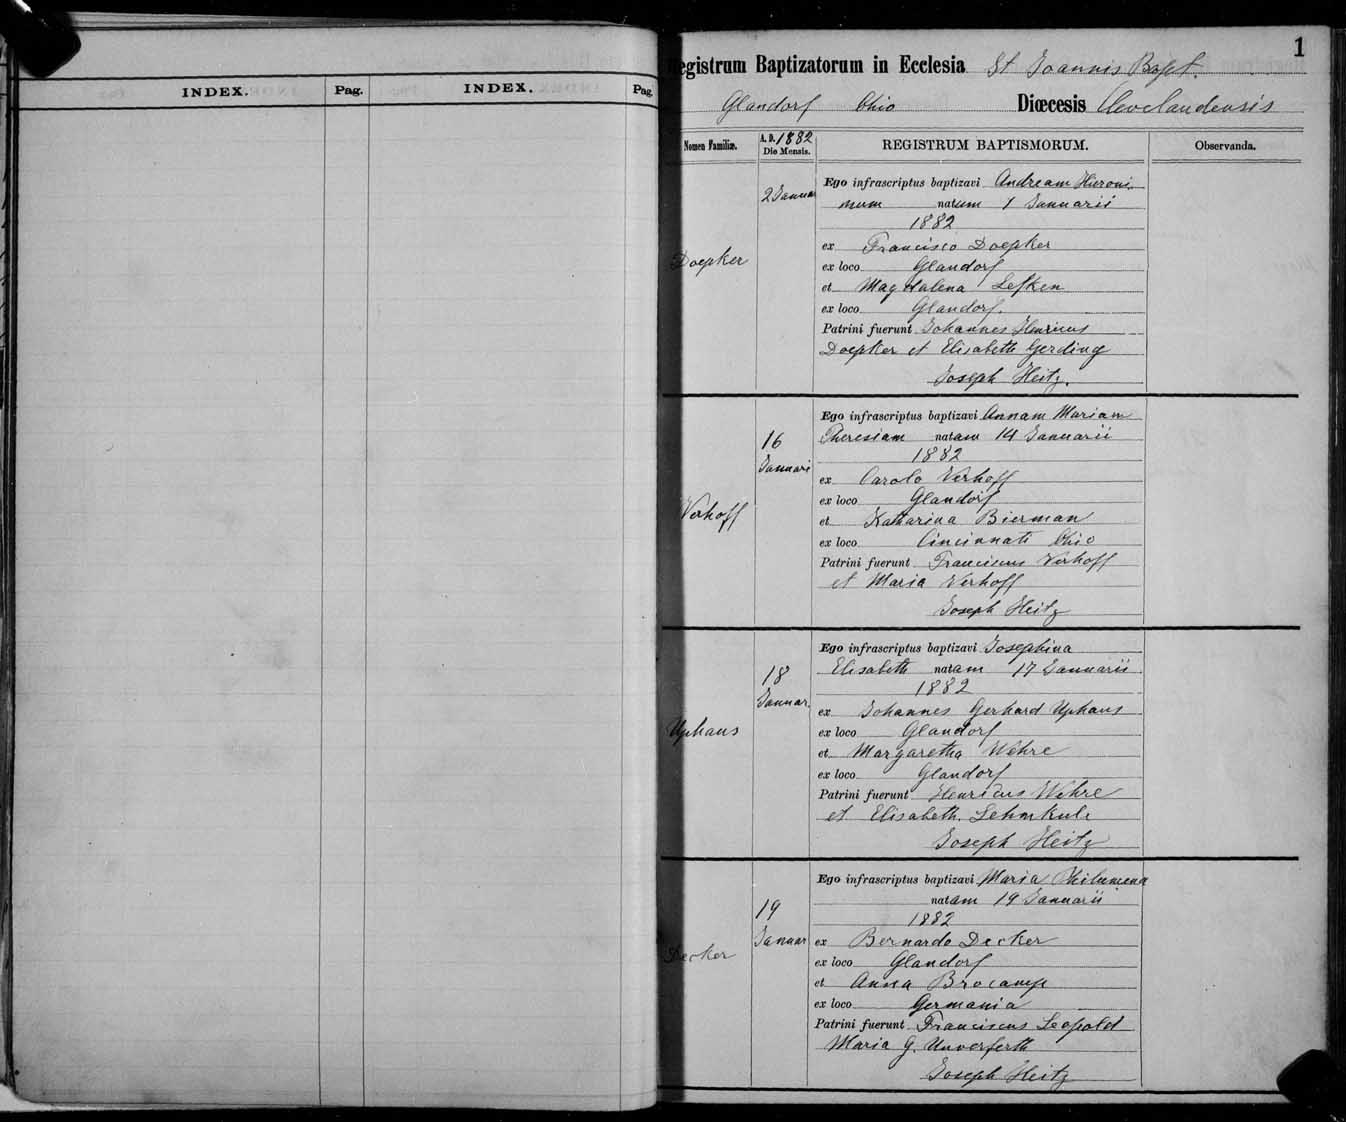 INDEX. Pag. INDEX. Pag.
1
Registrum Baptizatorum in Ecclesia St Joannis Bapt.
Glandorf Ohio Diœcesis Clevelandensis
Nomen Familiæ. A. D. 1882 Die Mensis. REGISTRUM BAPTISMORUM. Observanda.
Doepker
2 Januar
Ego infrascriptus baptizavi Andream Hieroni
mum natum 1 Januarii
1882
ex Francisco Doepker
ex loco Glandorf
et Magdalena Lefken
ex loco Glandorf.
Patrini fuerunt Johannes Henricus
Doepker et Elisabeth Gerding
Joseph Heitz.
Verhoff
16
Januari
Ego infrascriptus baptizavi Annam Mariam
Theresiam natam 14 Januarii
1882
ex Carolo Verhoff
ex loco Glandorf
et Katharina Bierman
ex loco Cincinnati Ohio
Patrini fuerunt Franciscus Verhoff
et Maria Verhoff
Joseph Heitz
Uphaus
18
Januar.
Ego infrascriptus baptizavi Josephina
Elisabeth natam 17 Januarii
1882
ex Johannes Gerhard Uphaus
ex loco Glandorf
et Margaretha Wehre
ex loco Glandorf
Patrini fuerunt Henricus Wehre
et Elisabeth. Lehmkule
Joseph Heitz
Decker
19
Januar
Ego infrascriptus baptizavi Maria Philumena
natam 19 Januarii
1882
ex Bernardo Decker
ex loco Glandorf
et Anna Brocamp
ex loco Germania
Patrini fuerunt Franciscus Leopold
Maria G. Unverferth
Joseph Heitz